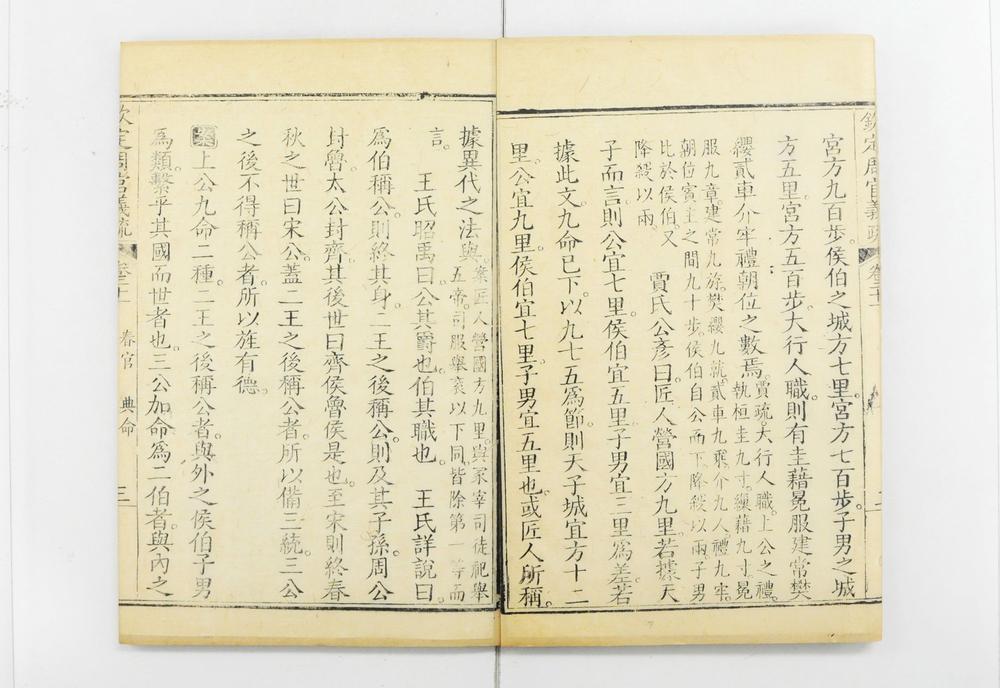 宮方九百步。侯伯之城方七里。宮方七百步。子男之城
方五里。宮方五百步。大行人職。則有圭藉冕服建常樊
纓貳車介牢禮朝位之數焉。賈疏。大行人職。上公之禮。執桓圭九寸。繅藉九寸。冕
服九章。建常九斿。樊纓九就。貳車九乘。介九人。禮九牢。朝位賓主之間九十步。侯伯自公而下。降殺以兩。子男
比於侯伯。又降殺以兩。 賈氏公彥曰。匠人營國方九里。若據天
子而言。則公宜七里。侯伯宜五里。子男宜三里爲差。若
據此文。九命已下。以九七五爲節。則天子城宜方十二
里。公宜九里。侯伯宜七里。子男宜五里也。或匠人所稱。
欽定周官義疏 卷二十 二
據異代之法與。案匠人營國方九里。與冢宰司徒祀舉五帝。司服舉袞以下同。皆除第一等而
言。 王氏昭禹曰。公其爵也。伯其職也。 王氏詳說曰。
爲伯稱公。則終其身。二王之後稱公。則及其子孫。周公
封魯。太公封齊。其後世曰齊侯魯侯是也。至宋則終春
秋之世曰宋公。蓋二王之後稱公者。所以備三統。三公
之後不得稱公者。所以旌有德。
案上公九命二種。二王之後稱公者。與外之侯伯子男
爲類。繫乎其國而世者也。三公加命爲二伯者。與內之
欽定周官義疏 卷二十 春官 典命 三